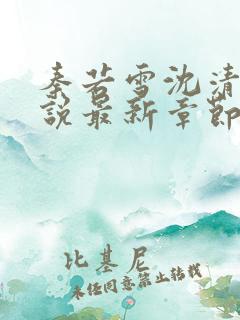 秦若雪沈清
说最新章节
比基尼
未经同意禁止转载